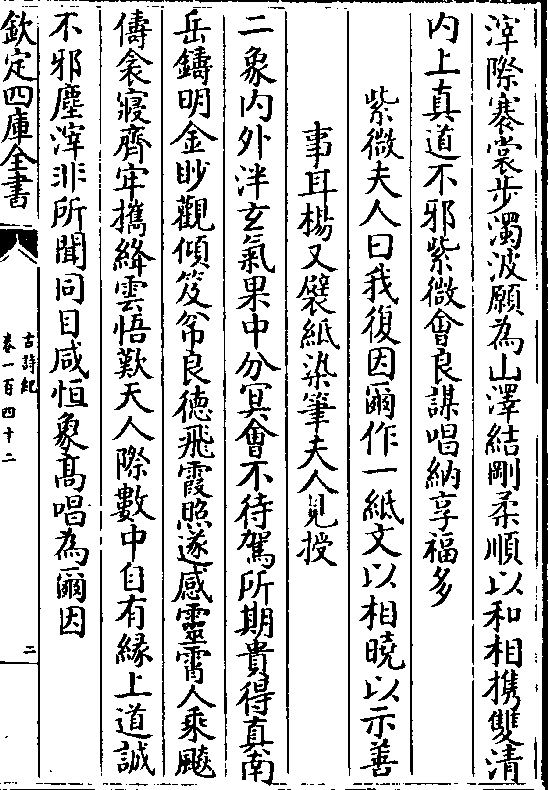 滓際褰裳步濁波願為山澤結剛柔順以和相攜雙清
内上真道不邪紫微會良謀唱納享福多
紫微夫人曰我復因爾作一紙文以相曉以示善
事耳楊又襞紙染筆夫人見授
二象内外泮玄氣果中分冥會不待駕所期貴得真南
岳鑄明金眇觀傾笈帉良德飛霞照遂感靈霄人乘飈
儔衾寢齊牢攜絳雲悟歎天人際數中自有緣上道誠
不邪塵滓非所聞同目咸恒象髙唱為爾因
欽定四庫全書
古詩紀
卷一百四十二
二